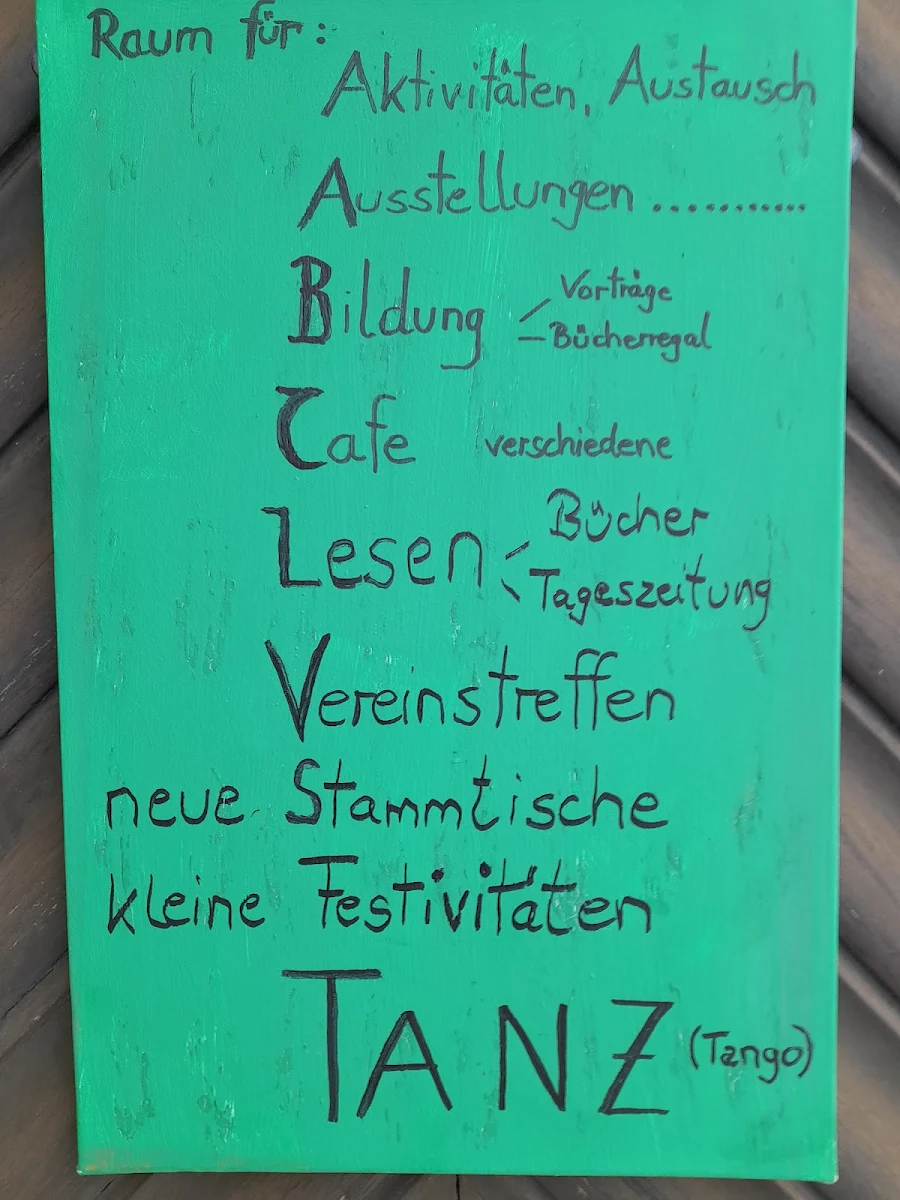 Raum für:
Aktivitäten, Austausch
Ausstellungen ...........
Bildung
Vorträge
Bücherregal
Cafe verschiedene
Lesen
Bücher
Tageszeitung
Vereinstreffen
neue Stammtische
kleine Festivitäten
TANZ (Tango)